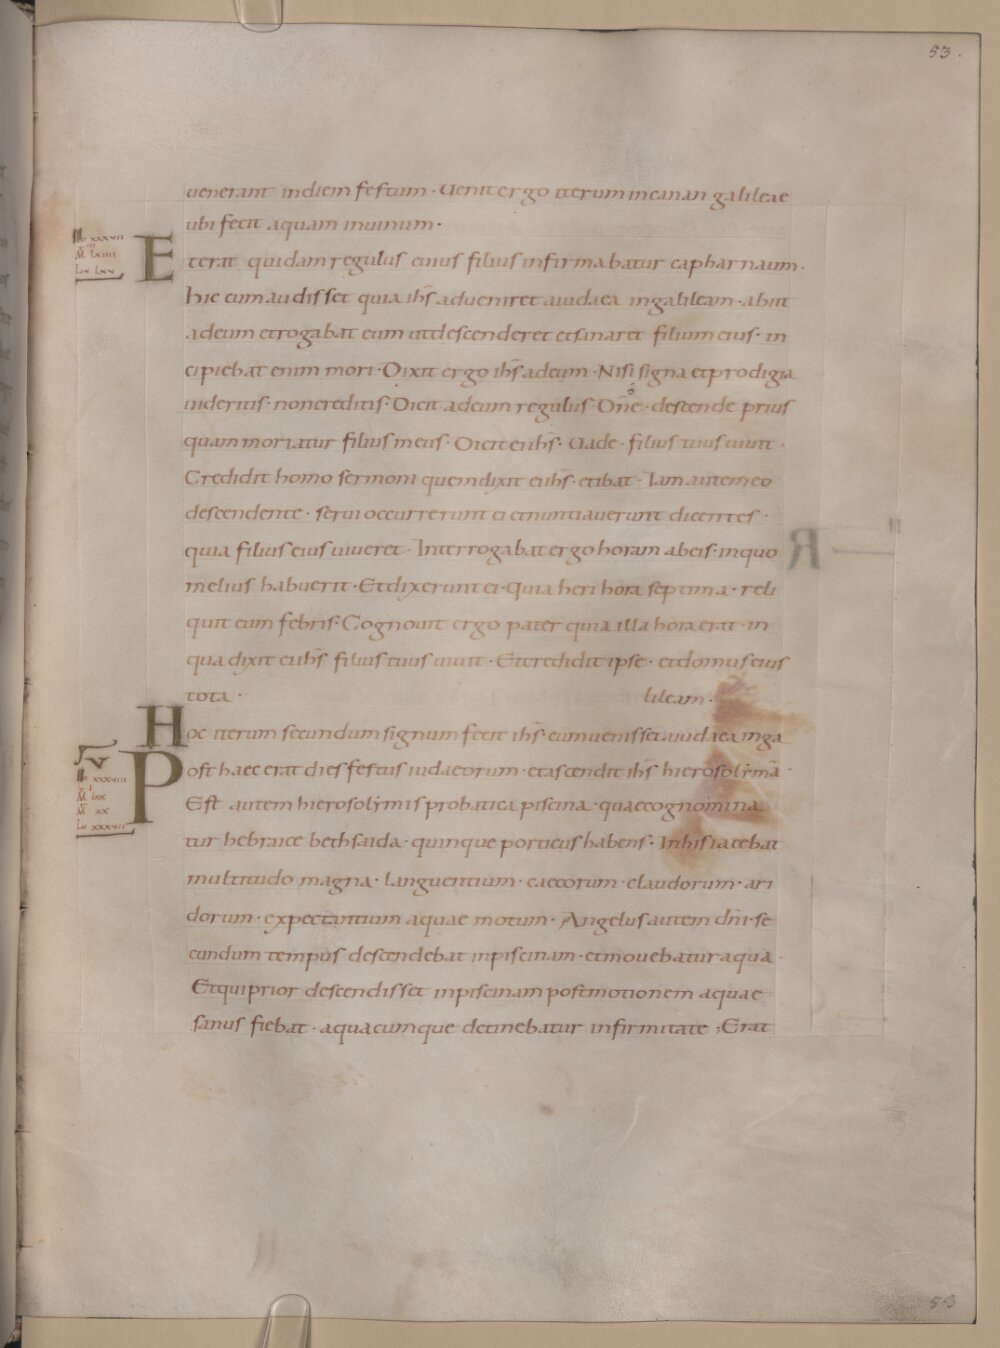 53.
uenerant indiem festum · Uenit ergo iterum incanan galileae
ubi fecit aquam inuinum ·
Io xxxvii
M lxiiii
Lu lxv
Eterat quidam regulus cuius filius infirmabatur capharnaum ·
hic cum audisset quia ihs adueniret aiudaea ingalileam · abiit
adeum etrogabat eum utdescenderet etsanaret filium eius · in
cipiebat enim mori · Dixit ergo ihs adeum · Nisi signa etprodigia
uideritis · noncreditis · Dicit adeum regulus · Dne · descende prius
quam moriatur filius meus · Dicit ei ihs · Uade · filius tuus uiuit ·
Credidit homo sermoni quemdixit ei ihs · etibat · Iam autem eo
descendente · serui occurrerunt ei etnuntiauerunt dicentes ·
quia filius eius uiueret · Interrogabat ergo horam abeis · inquo
melius habuerit · Etdixerunt ei · Quia heri hora septima · reli
quit eum febris · Cognouit ergo pater quia illa hora erat · in
qua dixit ei ihs filius tuus uiuit · Etcredidit ipse · etdomus eius
tota · lileam ·
Hoc iterum secundum signum fecit ihs · cum uenisset aiudaea inga
Io xxxviii
M lxx
M xx
Lu xxxvii
Post haec erat dies festus iudaeorum · etascendit ihs hierosolyma ·
Est autem hierosolymis probatica piscina · quaecognomina
tur hebraice bethsaida · quinque porticus habens · Inhis iacebat
multitudo magna · languentium · caecorum · claudorum · ari
dorum · expectantium aquae motum · Angelus autem dni · se
cundum tempus descendebat inpiscinam · etmouebatur aqua ·
Etqui prior descendisset inpiscinam postmotionem aquae
sanus fiebat · aquacumque detinebatur infirmitate ; Erat
53